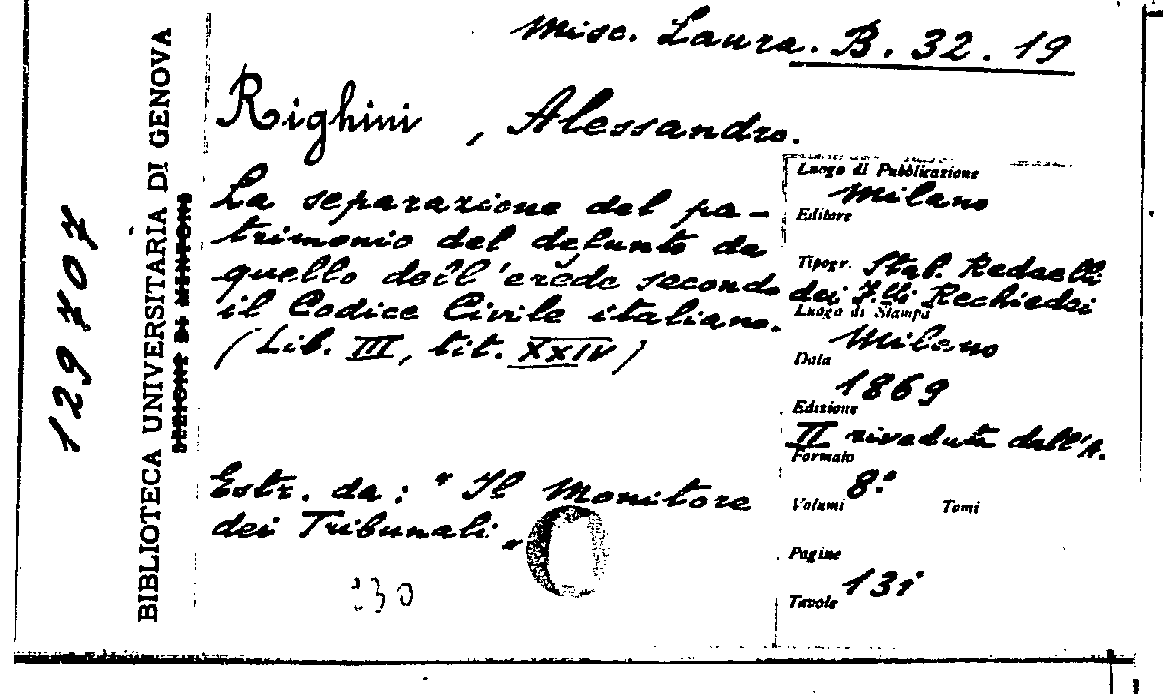 Misc. Laura. B. 32. 19
Righini, Alessandro.
La separazione del pa-
trimonio del defunto da
quello dell'erede secondo
il Codice Civile italiano.
(Lib. III, tit. XXIV)
Estr. da: "Il Monitore
dei Tribunali"
Luogo di Pubblicazione
Milano
Editore
Tipogr. Stab. Redaelli
dei F.lli Rechiedei
Luogo di Stampa
Milano
Data
1869
Edizione
II riveduta dall'A.
Formato
8.°
Volumi Tomi
Pagine
131
Tavole
BIBLIOTECA UNIVERSITARIA DI GENOVA
129707